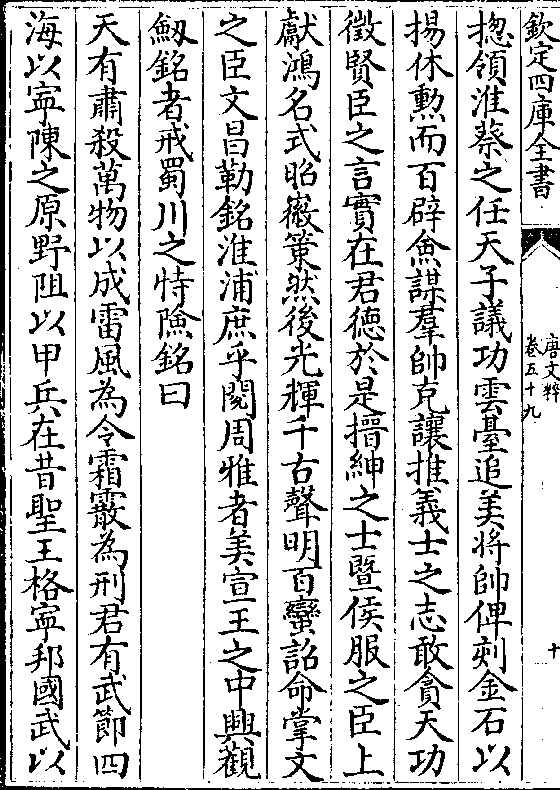 欽定四庫全書
唐文粹
卷五十九
十
揔領淮蔡之任天子議功雲臺追美将帥俾刻金石以
揚休勲而百辟僉謀羣帥克讓推義士之志敢貪天功
徵賢臣之言實在君德於是搢紳之士暨侯服之臣上
獻鴻名式昭徽䇿然後光輝千古聲明百蠻詔命掌文
之臣文昌勒銘淮浦庶乎閱周雅者美宣王之中興觀
劔銘者戒蜀川之恃險銘曰
天有肅殺萬物以成雷風為令霜霰為刑君有武節四
海以寧陳之原野阻以甲兵在昔聖王格寧邦國武以